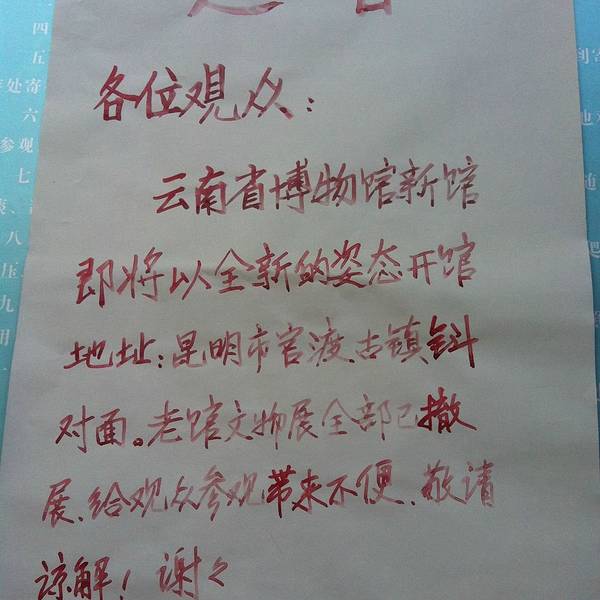 各位观众：
云南省博物馆新馆
即将以全新的姿态开馆
地址：昆明市官渡古镇斜
对面。老馆文物展全部已撤
展、给观众参观带来不便、敬请
谅解！谢々
四
五
处寄
六
参观
七
八
压
九
到寄
随